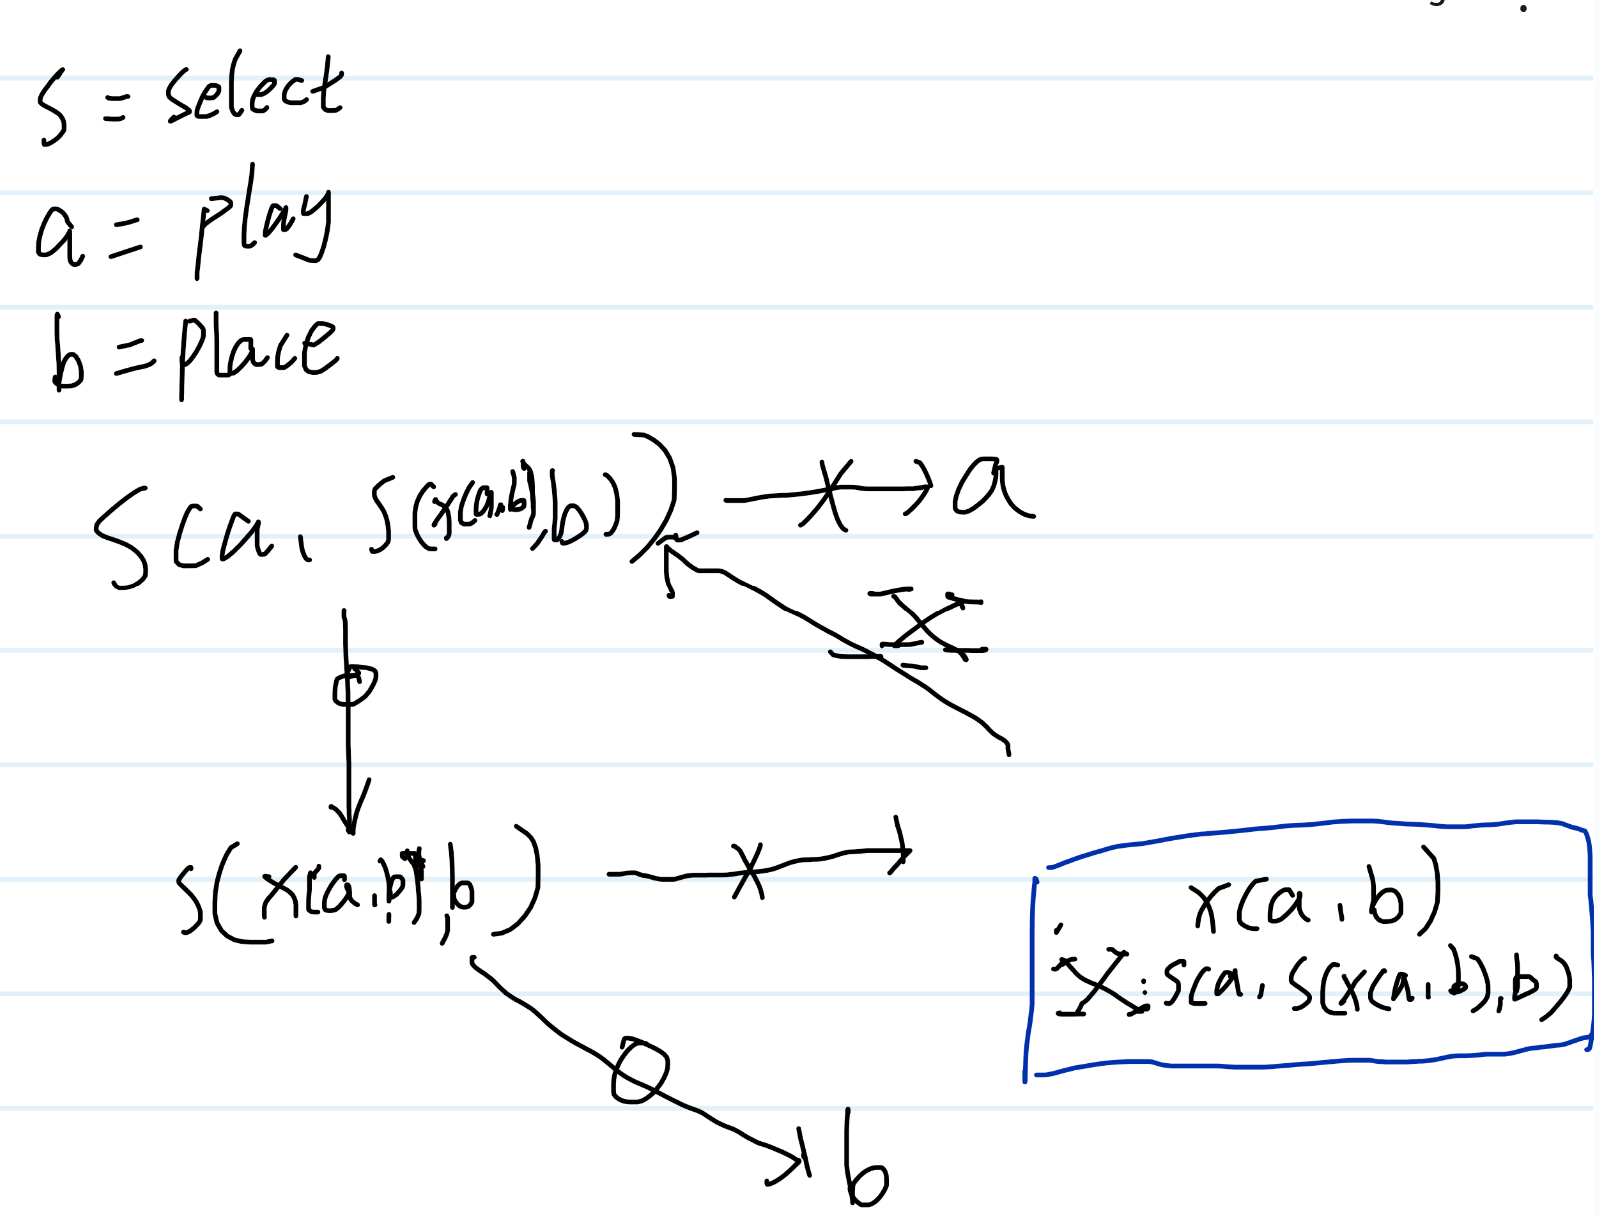 s = select
a = play
b = place
S(a, S(x(a,b),b)) x a
X
s(x(a,b),b) x
x(a,b)
X: s(a, s(x(a,b),b)
b